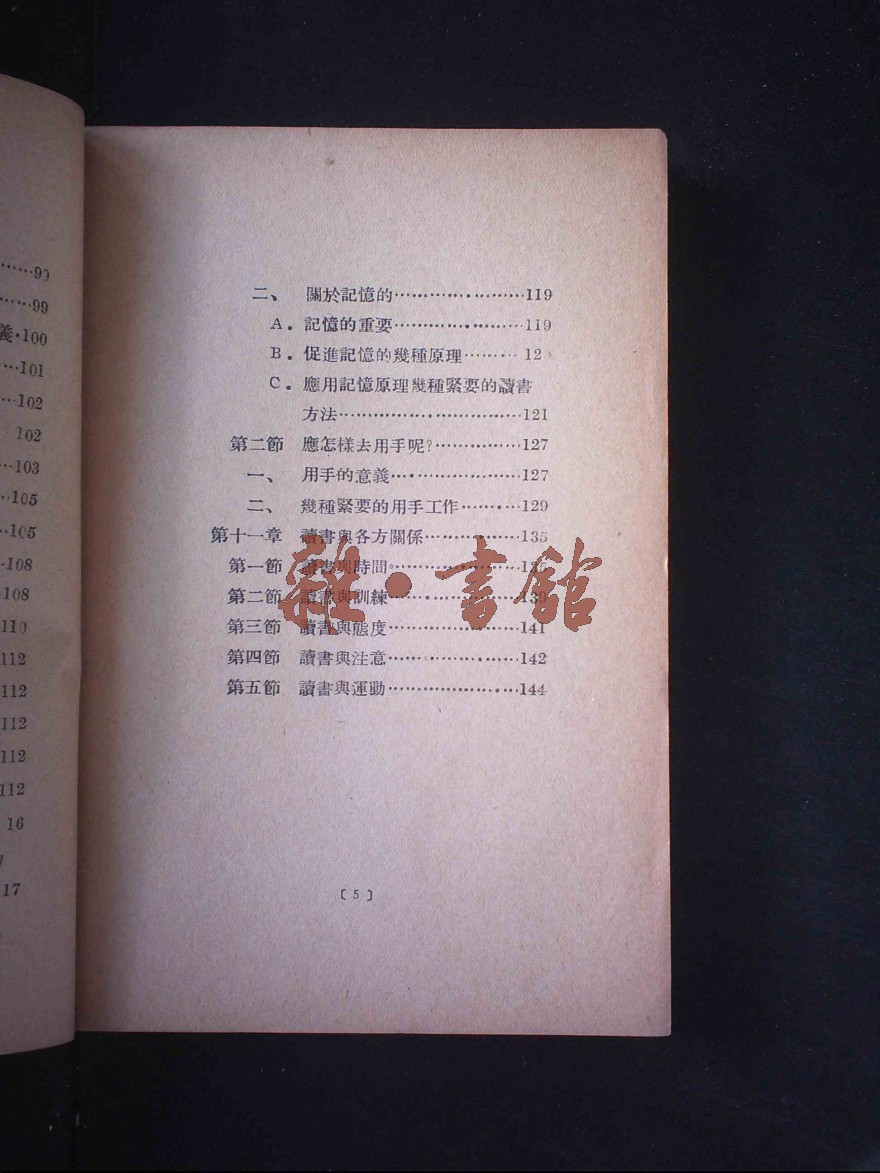 99
99
義·100
101
102
102
103
105
105
108
108
110
112
112
112
112
112
16
17
二、 關於記憶的……………………119
A. 記憶的重要……………………119
B. 促進記憶的幾種原理……… 12
C. 應用記憶原理幾種緊要的讀書
方法……………………………121
第二節 應怎樣去用手呢?……………127
一、 用手的意義……………………127
二、 幾種緊要的用手工作…………129
第十一章 讀書與各方關係………………135
第一節 讀書與時間……………………135
第二節 讀書與訓練……………………139
第三節 讀書與態度……………………141
第四節 讀書與注意……………………142
第五節 讀書與運動……………………144
雜·書館
〔5〕